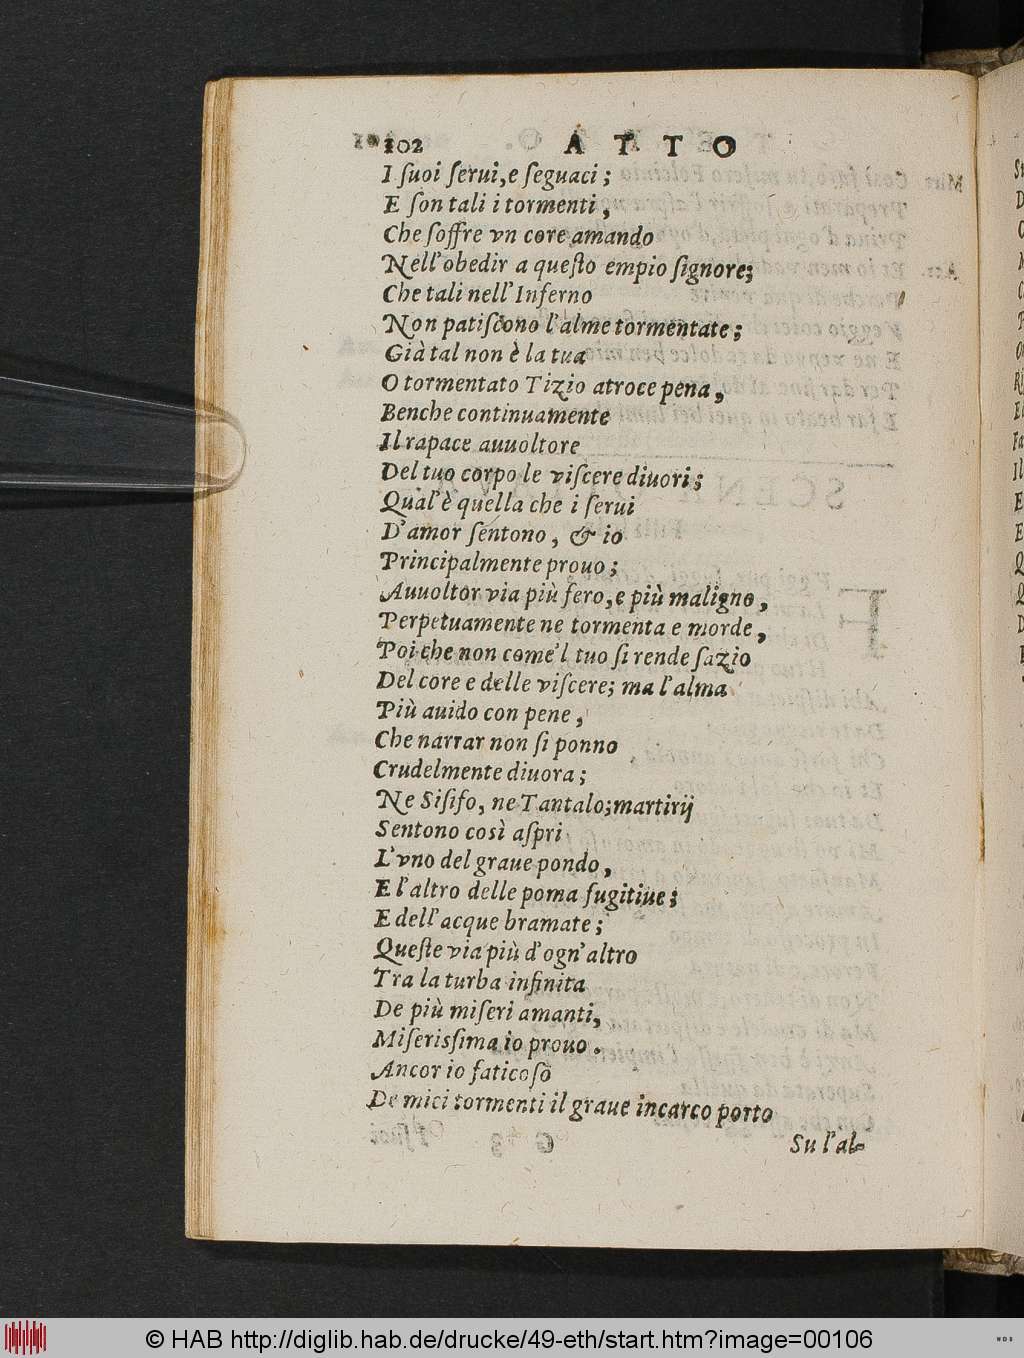 102 ATTO
I ſuoi ſerui, e ſeguaci;
E ſon tali i tormenti,
Che ſoffre vn core amando
Nell'obedir a queſto empio ſignore;
Che tali nell'Inferno
Non patiſcono l'alme tormentate;
Già tal non è la tua
O tormentato Tizio atroce pena,
Benche continuamente
Il rapace auuoltore
Del tuo corpo le viſcere diuori;
Qual'è quella che i ſerui
D'amor ſentono, & io
Principalmente prouo;
Auuoltor via più fero, e più maligno,
Perpetuamente ne tormenta e morde,
Poi che non come'l tuo ſi rende ſazio
Del core e delle viſcere; ma l'alma
Più auido con pene,
Che narrar non ſi ponno
Crudelmente diuora;
Ne Siſifo, ne Tantalo; martirij
Sentono così aſpri
L'vno del graue pondo,
E l'altro delle poma fugitiue;
E dell'acque bramate;
Queſte via più d'ogn'altro
Tra la turba infinita
De più miſeri amanti,
Miſeriſſima io prouo.
Ancor io faticoſo
De miei tormenti il graue incarco porto
Su l'al-
© HAB http://diglib.hab.de/drucke/49-eth/start.htm?image=00106